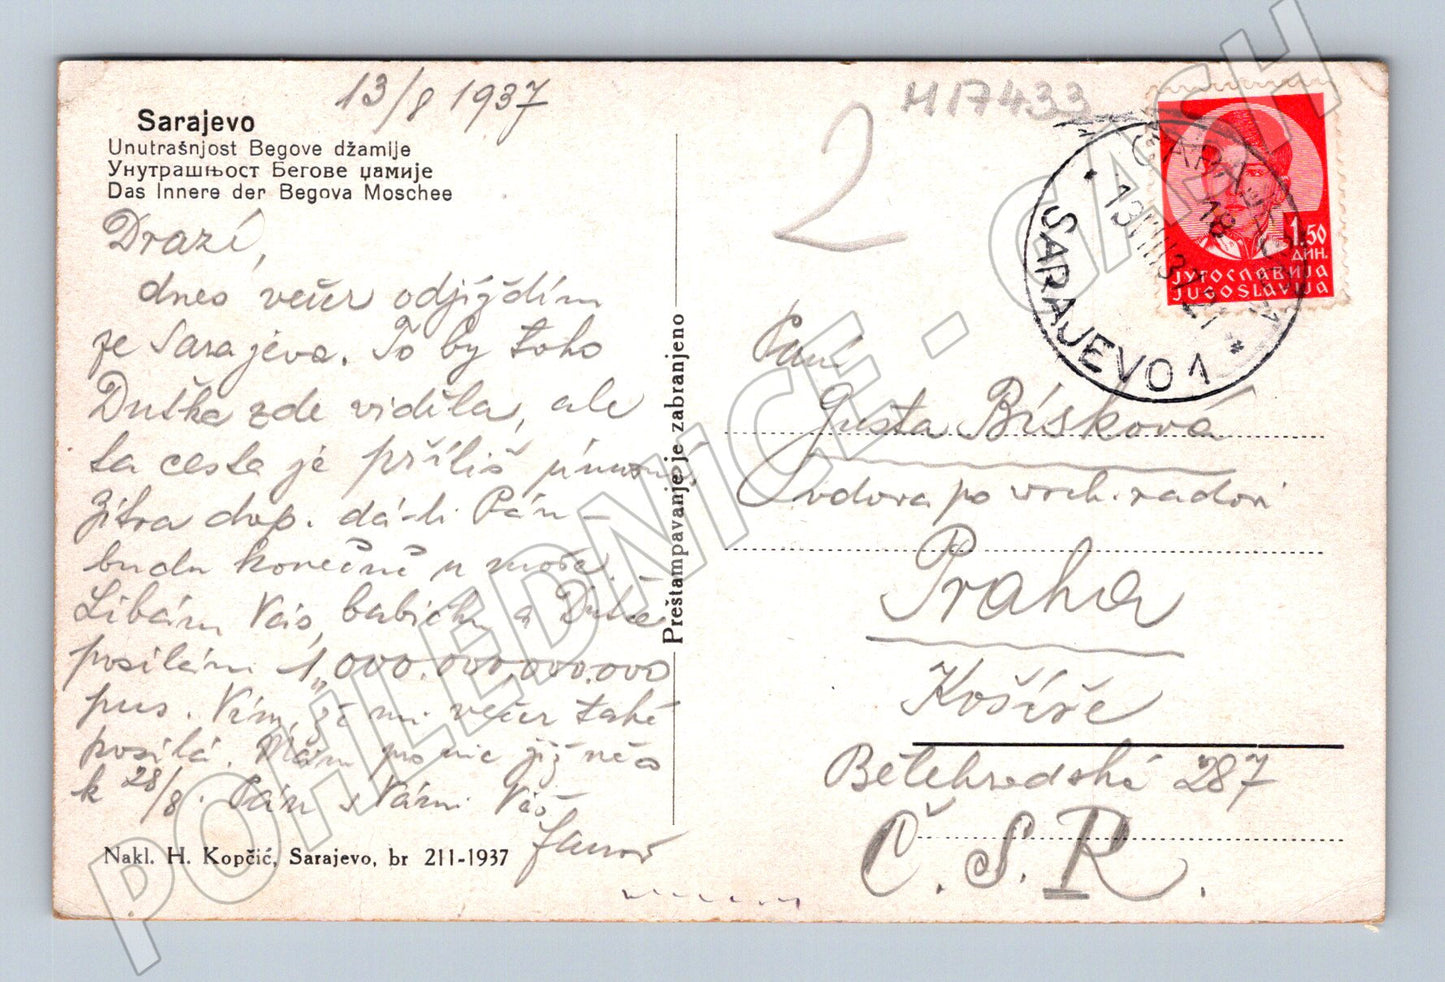 13/8 1937
Sarajevo
Unutrašnjost Begove džamije
Унутрашњост Бегове џамије
Das Innere der Begova Moschee
Drazí,
dnes večer odjíždím
ze Sarajeva. To by toho
Duška zde viděla, ale
ta cesta je příliš únavná
Zítra dop. dá-li Pán-
budu konečně u moře.
Líbám Vás, babičku a
posílám 1,000.000,000.000
pus. Vím, že mi večer také
posílá. Mám po již
k 28/8. Pán s Vámi Váš
Nakl. H. Kopčić, Sarajevo, br 211-1937
Preštampavanje je zabranjeno
2
H17433
САРАЈЕВО 1
13.VIII.37.21
18
SARAJEVO 1
1.50
ДИН.
ЈУГОСЛАВИЈА
JUGOSLAVIJA
Paní
Gusta Bísková
vdova po vrch. radovi
Praha
Košíře
Bělehradská 287
Č.S.R.
POHLEDNICE - CASH